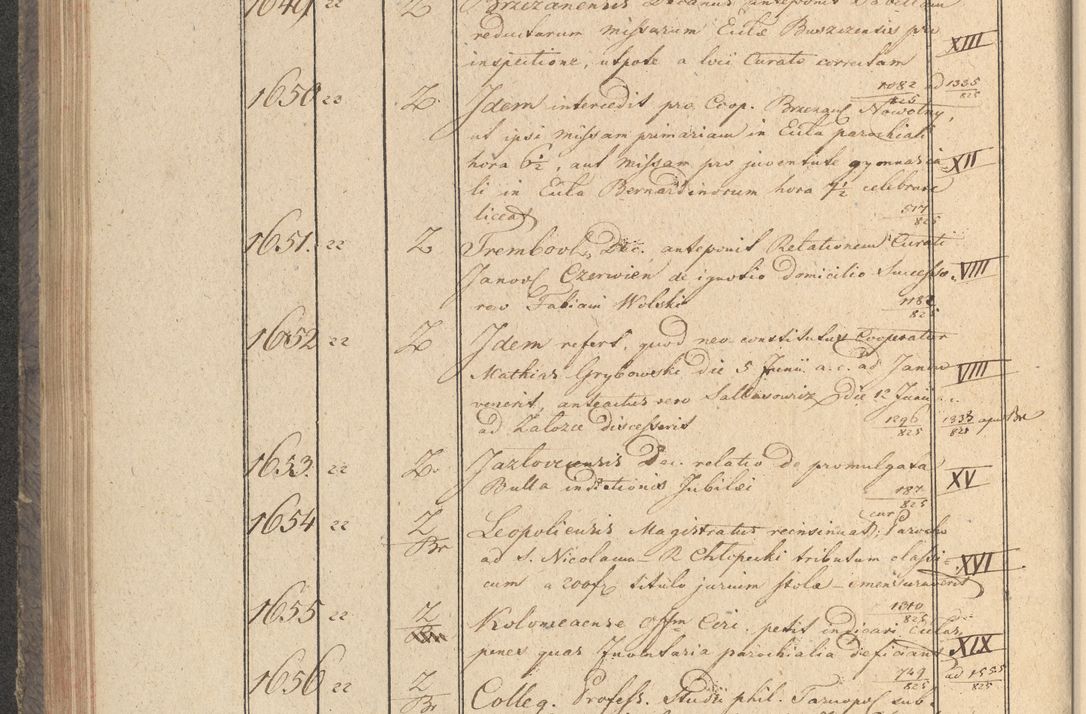 1649 22 Z Brzezanensis Decanus anteponit Tabellam
reductarum missarum Eccłae Buszczensis pro
inspectione, utpote a loci Curato correctam XIII
1082/825 ad 1335/825
1650 23 Z Idem intercedit pro Coop. Brzezan Nowotny,
ut ipsi missam primariam in Eccła parochiali
hora 6 1/2, aut missam pro juventute gymnasia XII
li in Eccła Bernardinorum hora 7 1/2 celebrare
liceat 517/825
1651. 22 Z Trembovl. Dec. anteponit Relationem Curati
Janov Czerwień de ignotio domicilio Successo VIII
rov Fabiani Wolski 1182/825
1652 22 Z Idem refert, quod neo-constitutus Cooperator
Mathias Grybowski die 5 Junii a.c. ad Janow VIII
venerit, anteactus vero Saltasowicz die 12 Junii a.c.
ad Załozce discesserit 1296/825 1333/825 apud Br
1653. 22 Z Jazloviecensis Dec. relatio de promulgata
Bulla indictionis Jubilaei 187/825 XV
1654 22 Z/Br Leopoliensis Magistratus recinsinuat, Parocho cur
ad S. Nicolaum R Chłopecki tributum classi XVI
cum a 200 fr titulo jurium stolae emensuraverit
1810/825
1655 22 Z Kolomeaense Offm Circ. petit indicari Ecclas,
penes quas Inventaria parochialia deficiant XIX
729/825 ad 1555/825
1656 22 Z/Br Colleg. Profess. Studii phil. Tarnopol sub